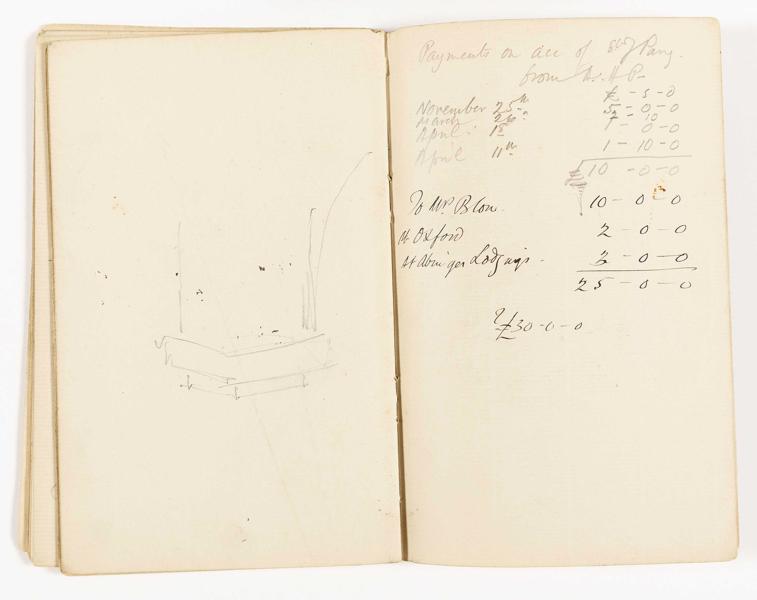 Payments on acc of
from Mr. H P-
£ - s - 0
November 25th 5 - 0 - 0
March 2 - 10
April 1st 1 - 0 - 0
April 11th 1 - 10 - 0
10 - 0 - 0
To Mrs Blow. 10 - 0 - 0
At Oxford 2 - 0 - 0
At Abinger Lodgings - 3 - 0 - 0
25 - 0 - 0
£30 - 0 - 0